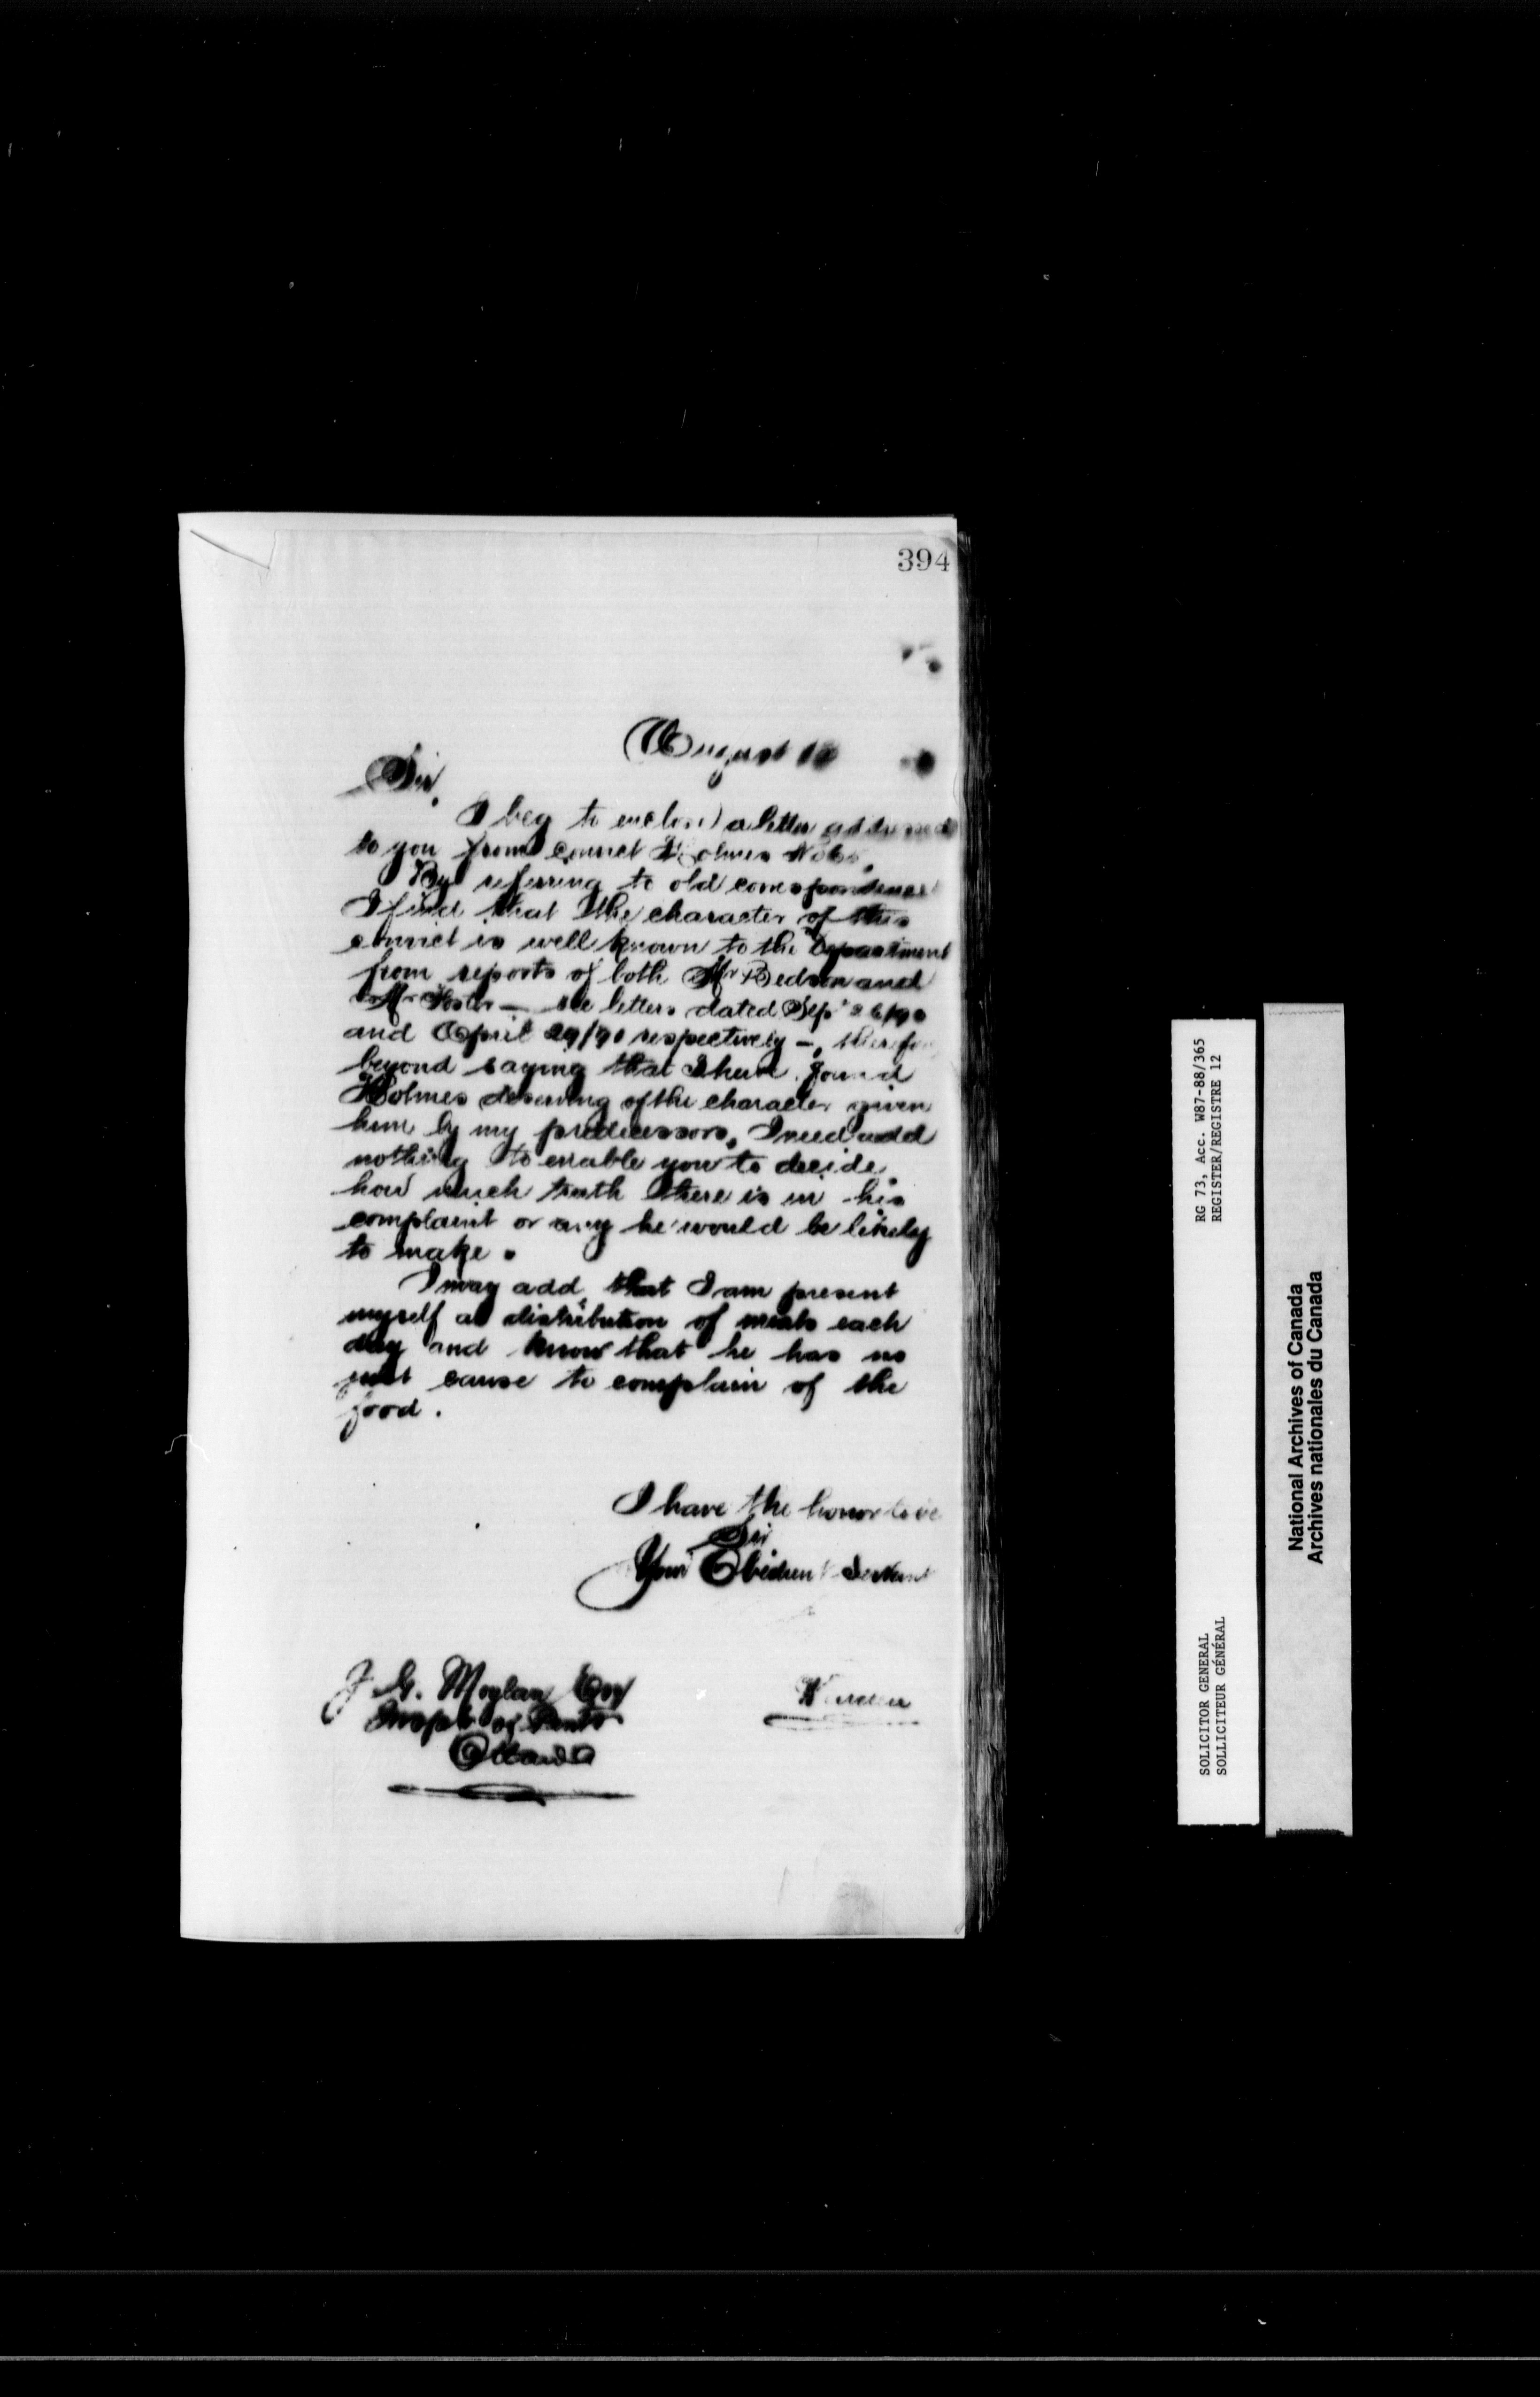 394
August
Sir,
I beg to enclose a letter addressed
to you from convict Holmes
By referring to old correspondence
I find that the character of this
convict is well known to the Department
from reports of both Mr Bedson and
Mr Foster — see letters dated Sep 26/90
and April 29/90 respectively —, therefore
beyond saying that I have found
Holmes deserving of the character given
him by my predecessors, I need add
nothing to enable you to decide
how much truth there is in his
complaint or any he would be likely
to make.
I may add that I am present
myself at distribution of meals each
day and know that he has no
just cause to complain of the
food.
I have the honor to be
Sir
Your Obedient Servant
J. G. Moylan Esq
Inspr of Pents
Ottawa
Warden
SOLICITOR GENERAL
SOLLICITEUR GÉNÉRAL
RG 73, Acc. W87-88/365
REGISTER/REGISTRE 12
National Archives of Canada
Archives nationales du Canada